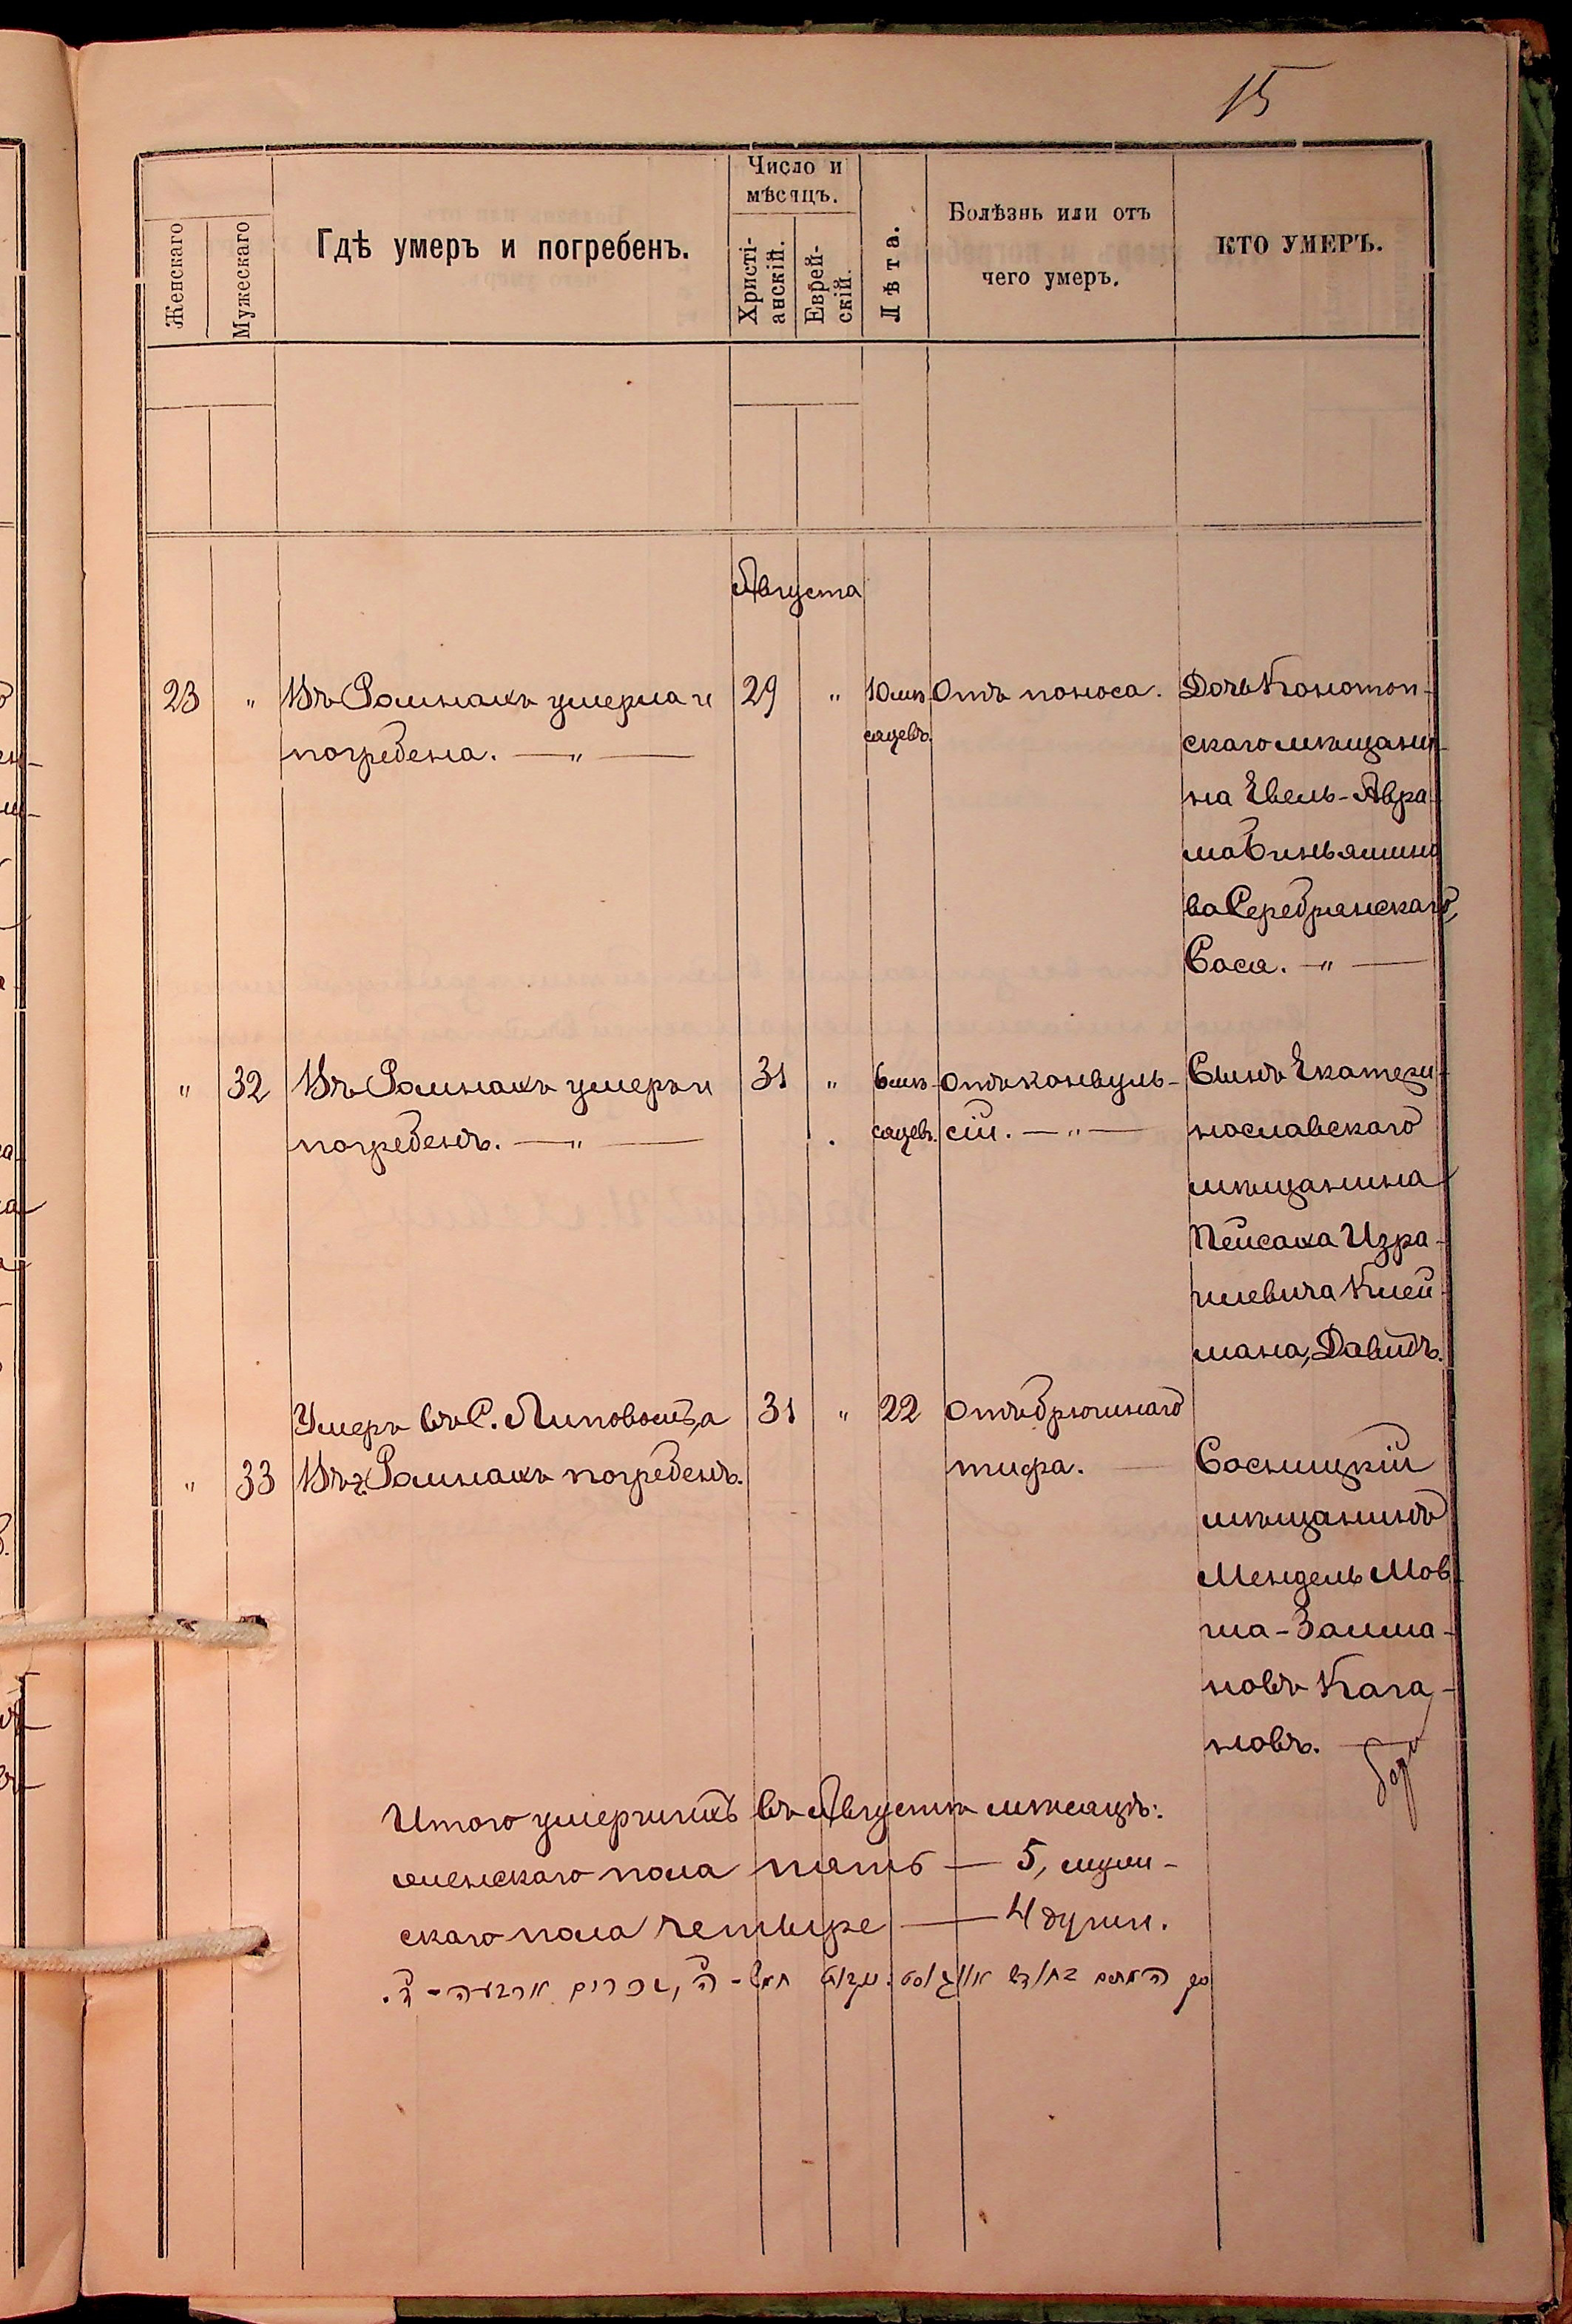 15
Женскаго
Мужескаго
Гдѣ умеръ и погребенъ.
Число и
мѣсяцъ.
Христі-
анскій.
Еврей-
скій.
Лѣта.
Болѣзнь или отъ
чего умеръ.
КТО УМЕРЪ.
Августа
23 " Въ Ромнахъ умерла и
погребена. — " —
29 " 10 мѣ-
сяцевъ.
Отъ поноса.
Дочь Конотоп-
скаго мѣщани-
на Евель-Авра-
ма Биньямино
ва Серебрянскаго,
Бася. — " —
" 32 Въ Ромнахъ умеръ и
погребенъ. — " —
31 " 6 мѣ-
сяцевъ.
Отъ конвуль-
сіи. — " —
Сынъ Екатери-
нославскаго
мѣщанина
Пейсаха Изра-
илевича Клей-
мана, Давидъ.
Умеръ въ С. Липовомъ, а
" 33 Въ г. Ромнахъ погребенъ.
31 " 22
Отъ брюшнаго
тифа. —
Сосницкій
мѣщанинъ
Мендель Мов-
ша-Залма-
новъ Кага-
новъ. —
Итого умершихъ въ Августѣ мѣсяцѣ:
женскаго пола пять — 5, муж-
скаго пола четыре — 4 души.